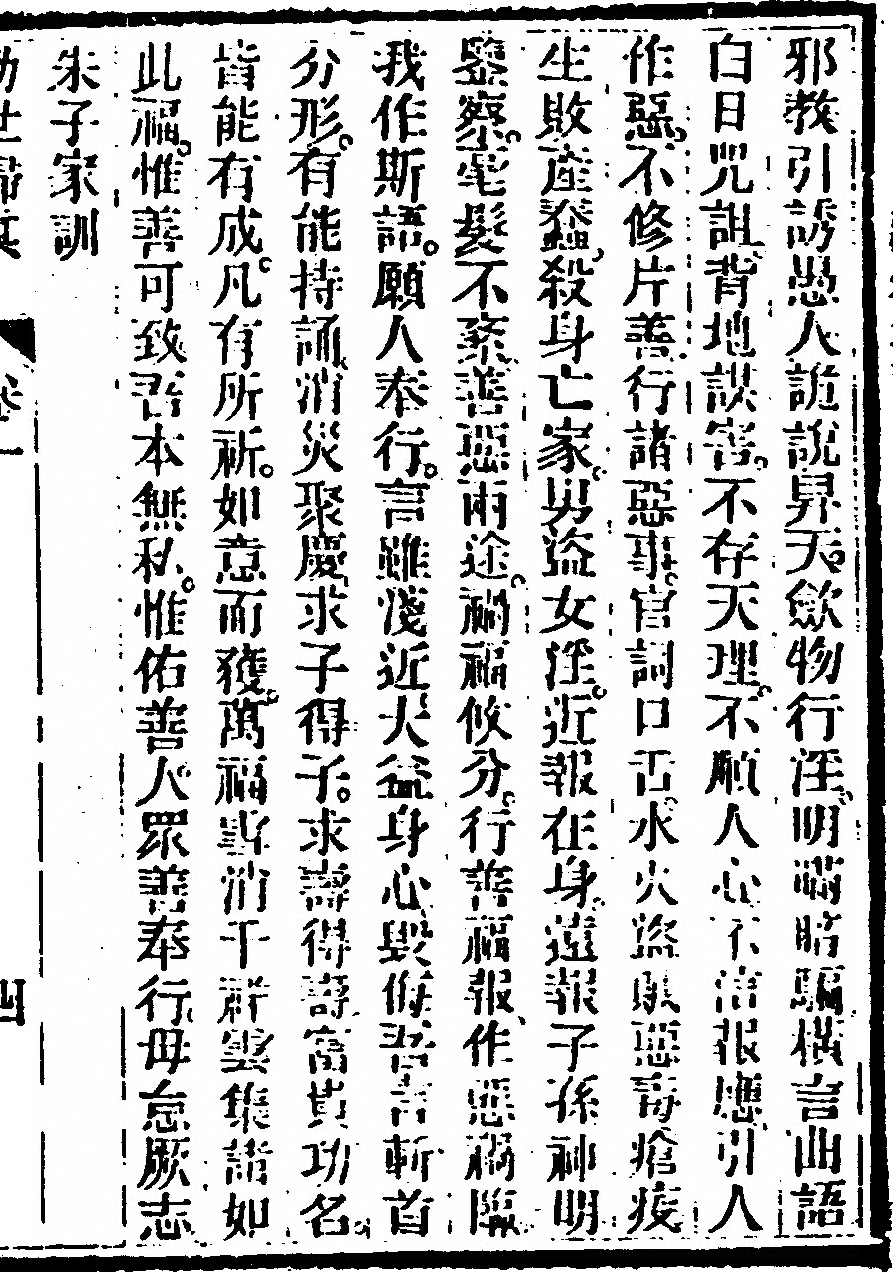 邪教引誘愚人詭說昇天歛物行淫明瞞暗騙橫言曲語
白日咒詛背地謀害。不存天理。不順人心不信報應引人
作惡。不修片善。行諸惡事。官詞口舌。水火盜賊惡毒瘟疫
生敗產蠢。殺身亡家。男盜女淫。近報在身。遠報子孫神明
鑒察。毫髮不紊。善惡兩途。禍福攸分。行善福報。作惡禍臨
我作斯語。願人奉行。言雖淺近大益身心毀侮吾言斬首
分形。有能持誦。消災聚慶。求子得子。求壽得壽。富貴功名。
皆能有成。凡有所祈。如意而獲。萬禍雪消千祥雲集諸如
此福。惟善可致吾本無私。惟佑善人。眾善奉行。毋怠厥志
朱子家訓
卷一
四